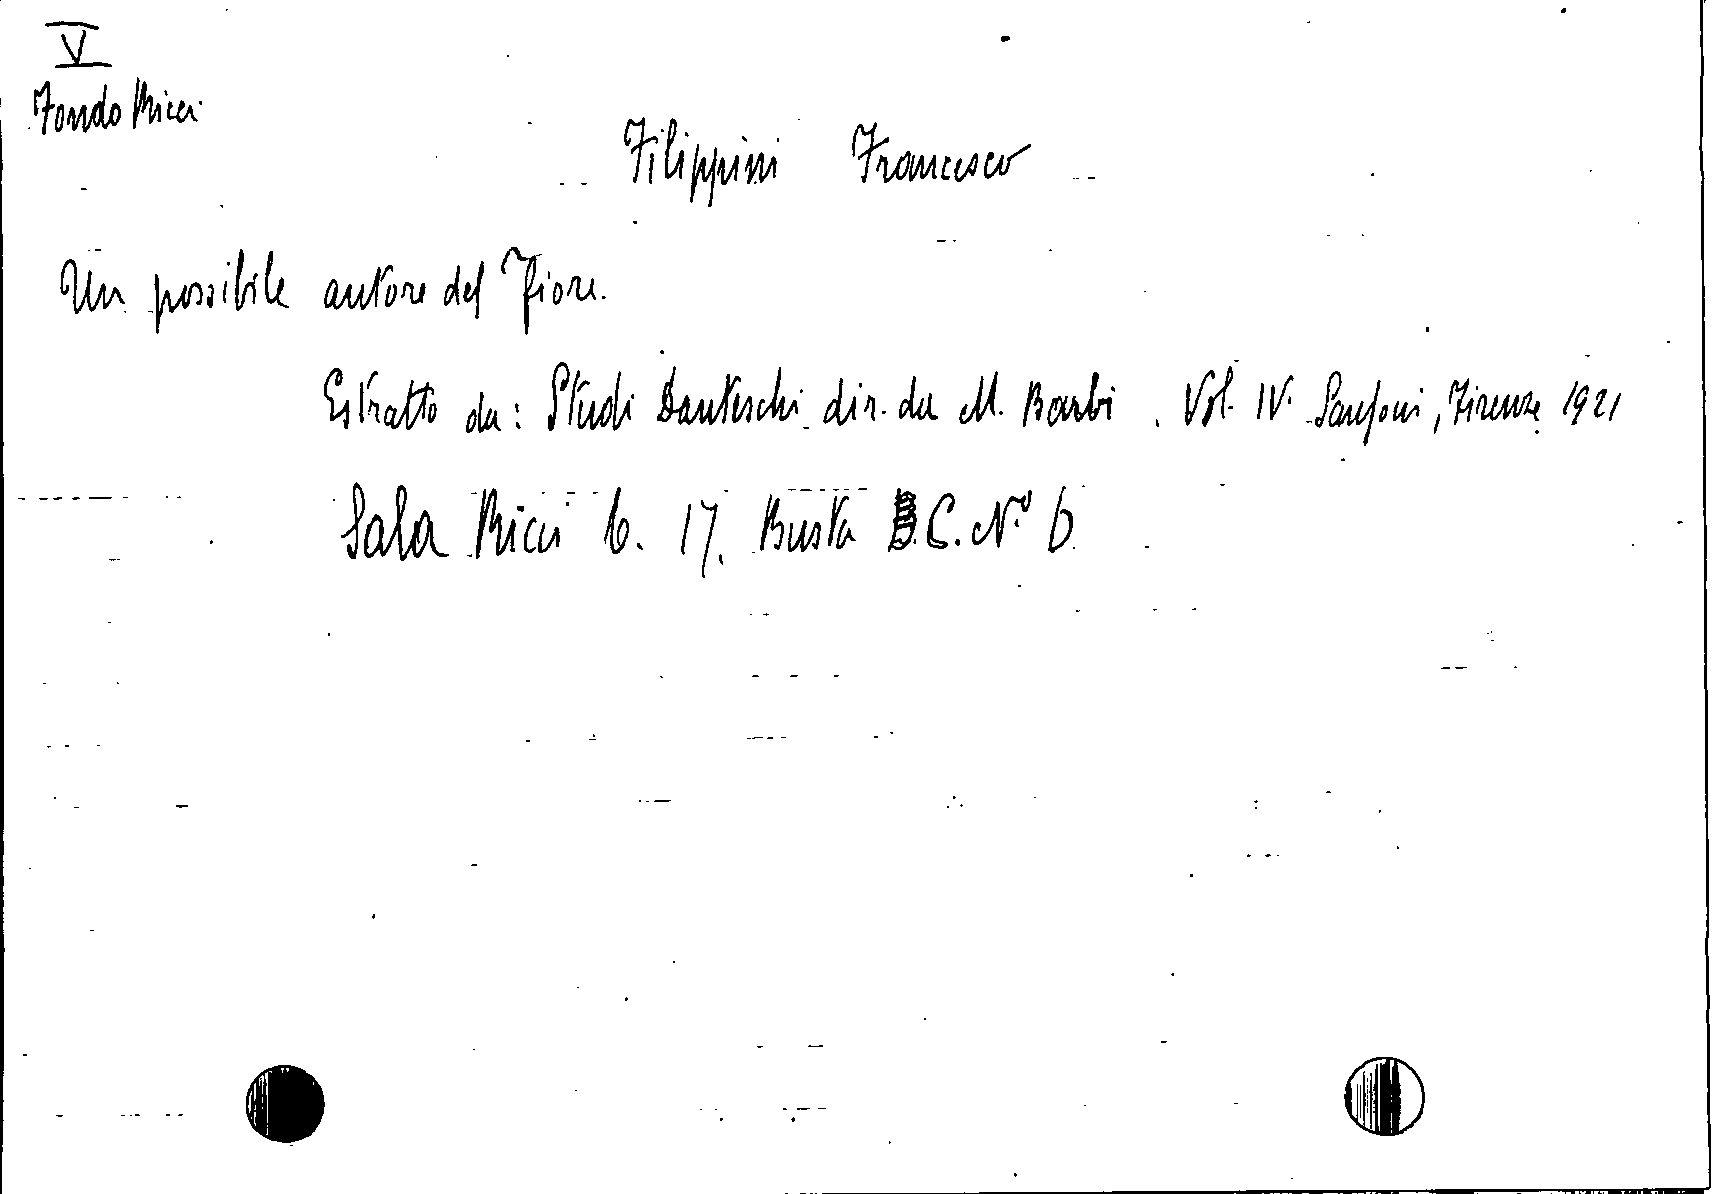 V
Fondo Ricci
Filippini Francesco
Un possibile autore del Fiore.
Estratto da: Studi Danteschi dir. da M. Barbi. Vol. IV. Sansoni, Firenze 1921
Sala Ricci 6. 17. Busta C. N.º 6